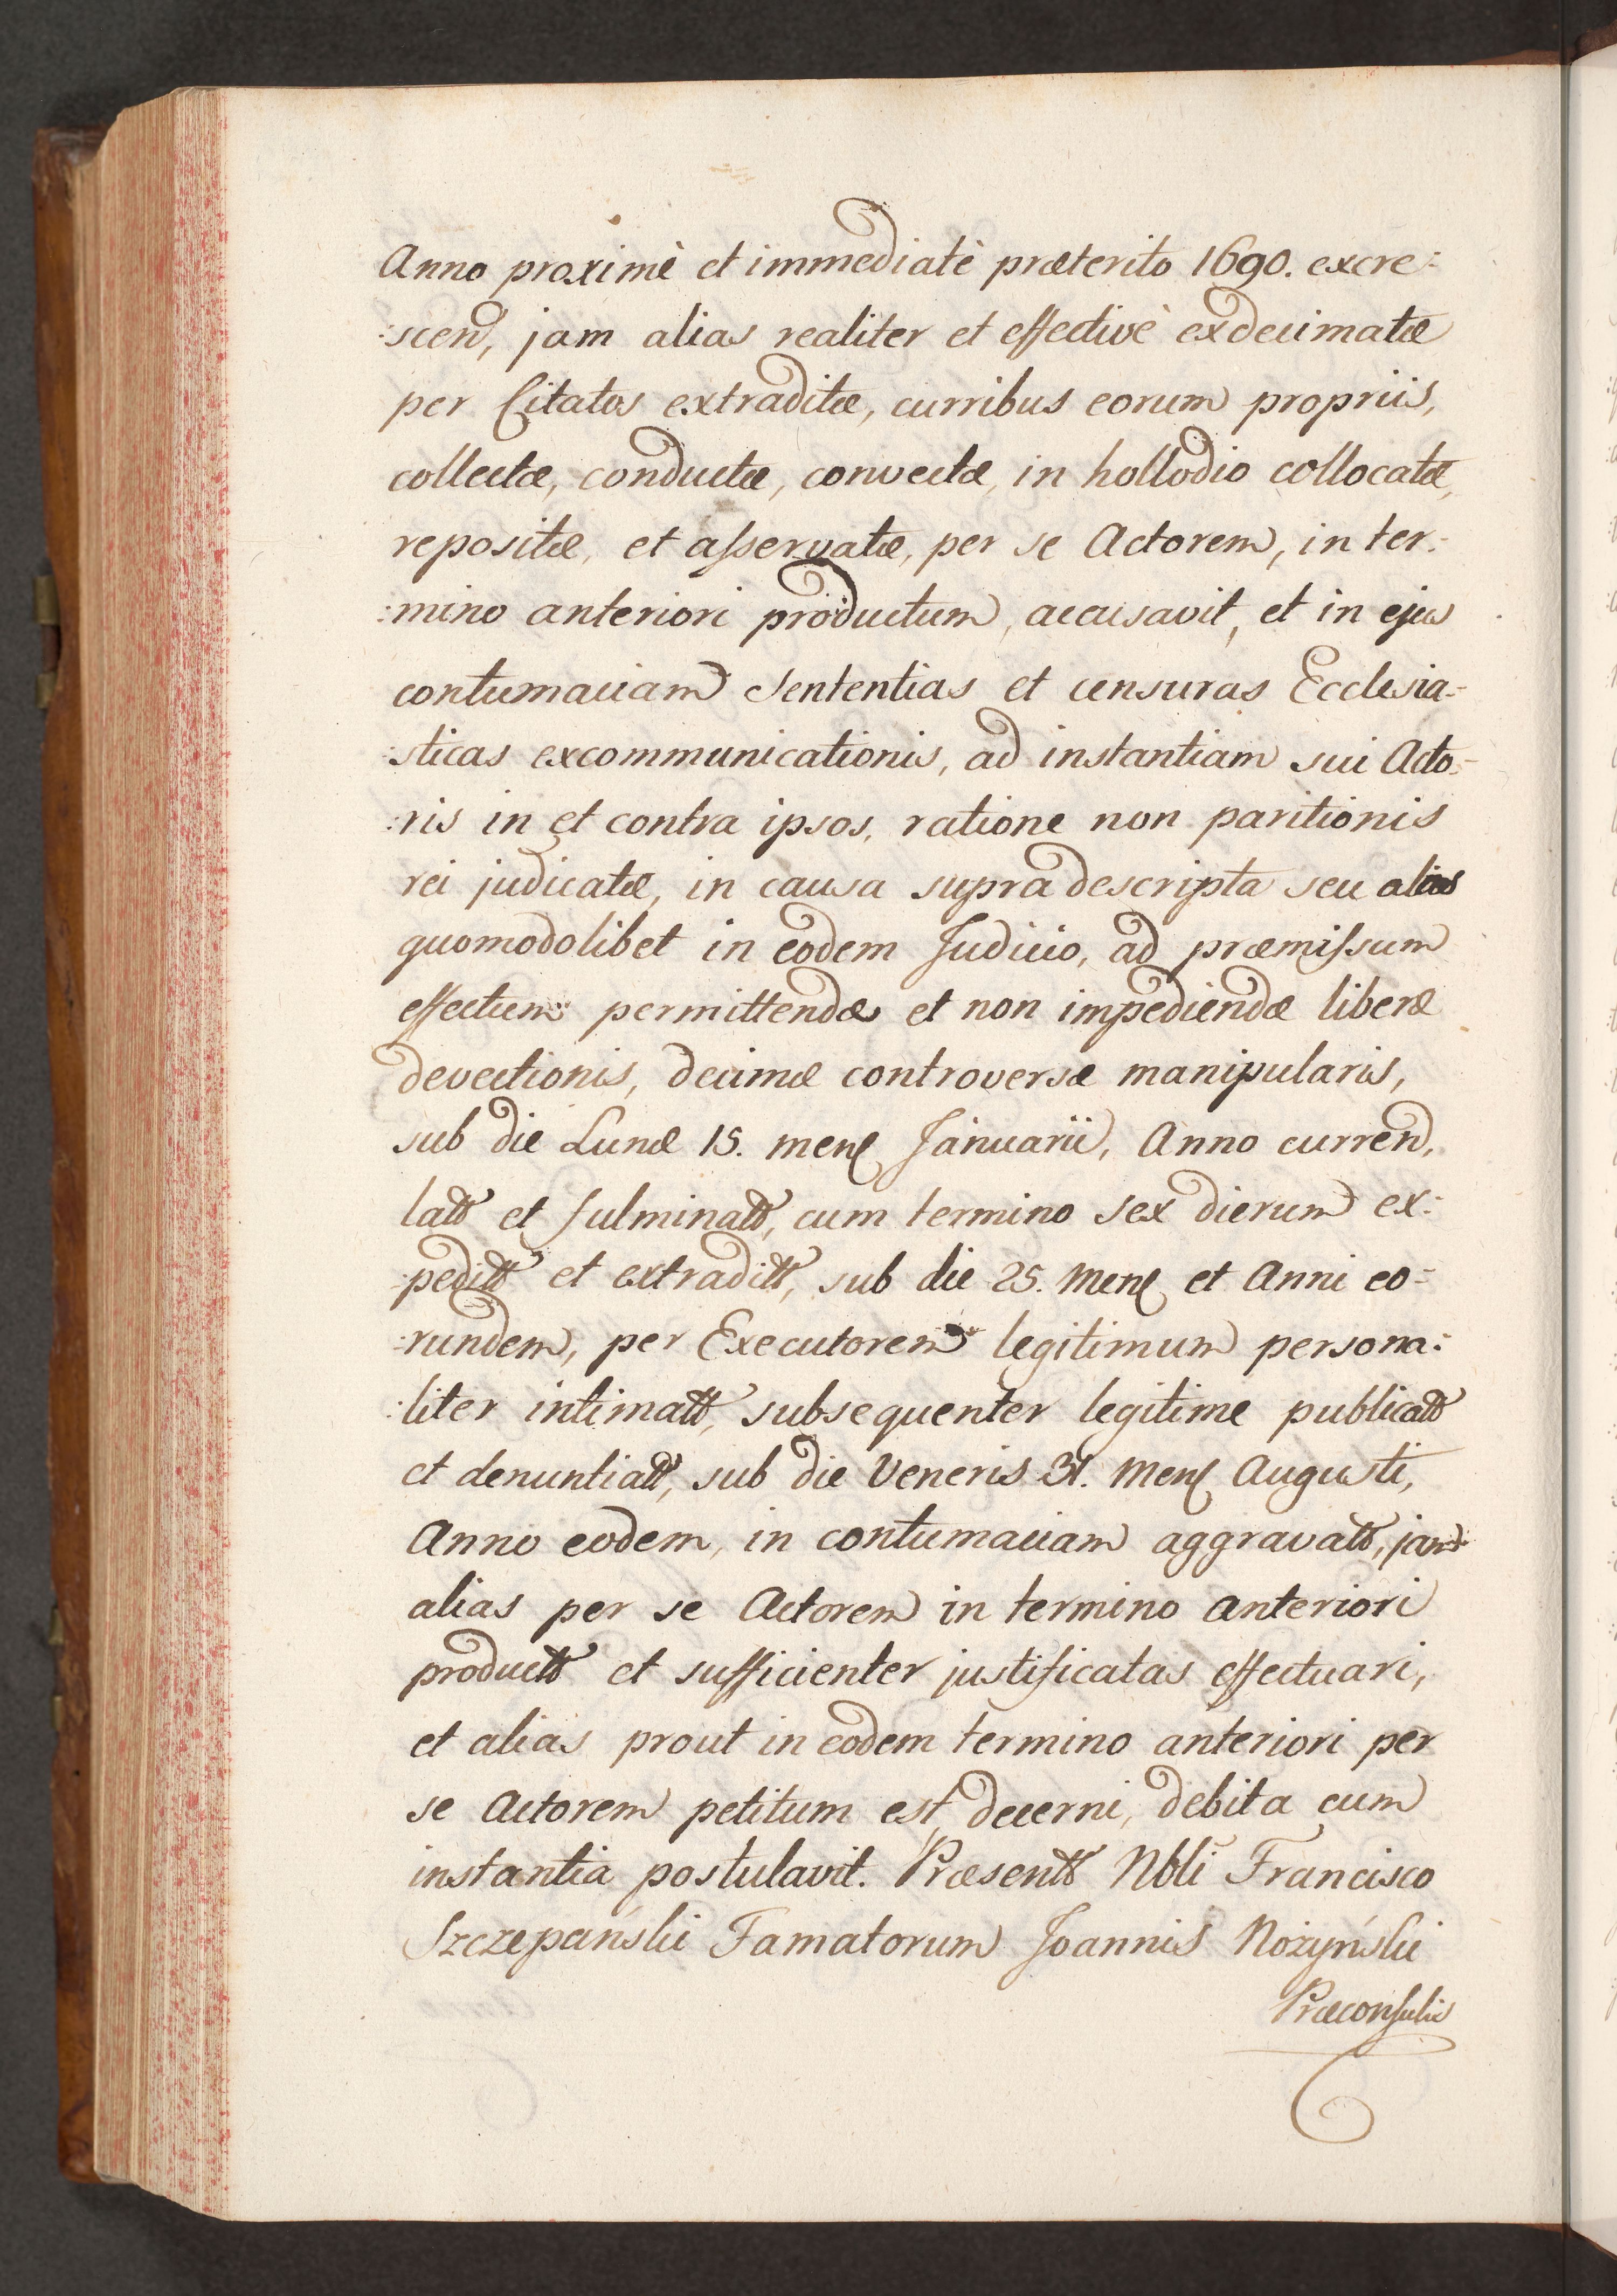 Anno proximè et immediatè præterito 1690. excre:
:scen, jam alias realiter et effectivè exdecimatæ
per Citatos extraditæ, curribus eorum propriis,
collectæ, conductæ, convectæ, in hollodio collocatæ,
repositæ, et asservatæ, per se Actorem, in ter:
:mino anteriori productum, accusavit, et in ejus
contumaciam Sententias et censuras Ecclesia:
:sticas excommunicationis, ad instantiam sui Acto:
:ris in et contra ipsos, ratione non paritionis
rei judicatæ, in causa supra descripta seu alias
quomodolibet in eodem Judicio, ad præmissum
effectum permittendæ et non impediendæ liberæ
devectionis, decimæ controversæ manipularis,
sub die Lunæ 15. mens Januarii, Anno curren,
latt et fulminatt, cum termino sex dierum ex:
:peditt et extraditt, sub die 25. Mens et Anni eo:
:rundem, per Executorem legitimum persona:
:liter intimatt, subsequenter legitime publicatt
et denuntiatt, sub die Veneris 31. Mens Augusti,
Anno eodem, in contumaciam aggravatt, jam
alias per se Actorem in termino anteriori
productt et sufficienter justificatas effectuari,
et alias prout in eodem termino anteriori per
se Actorem petitum est, decerni, debita cum
instantia postulavit. Præsentt Nbli Francisco
Szczepański Famatorum Joannis Nożyński
Præconsulis